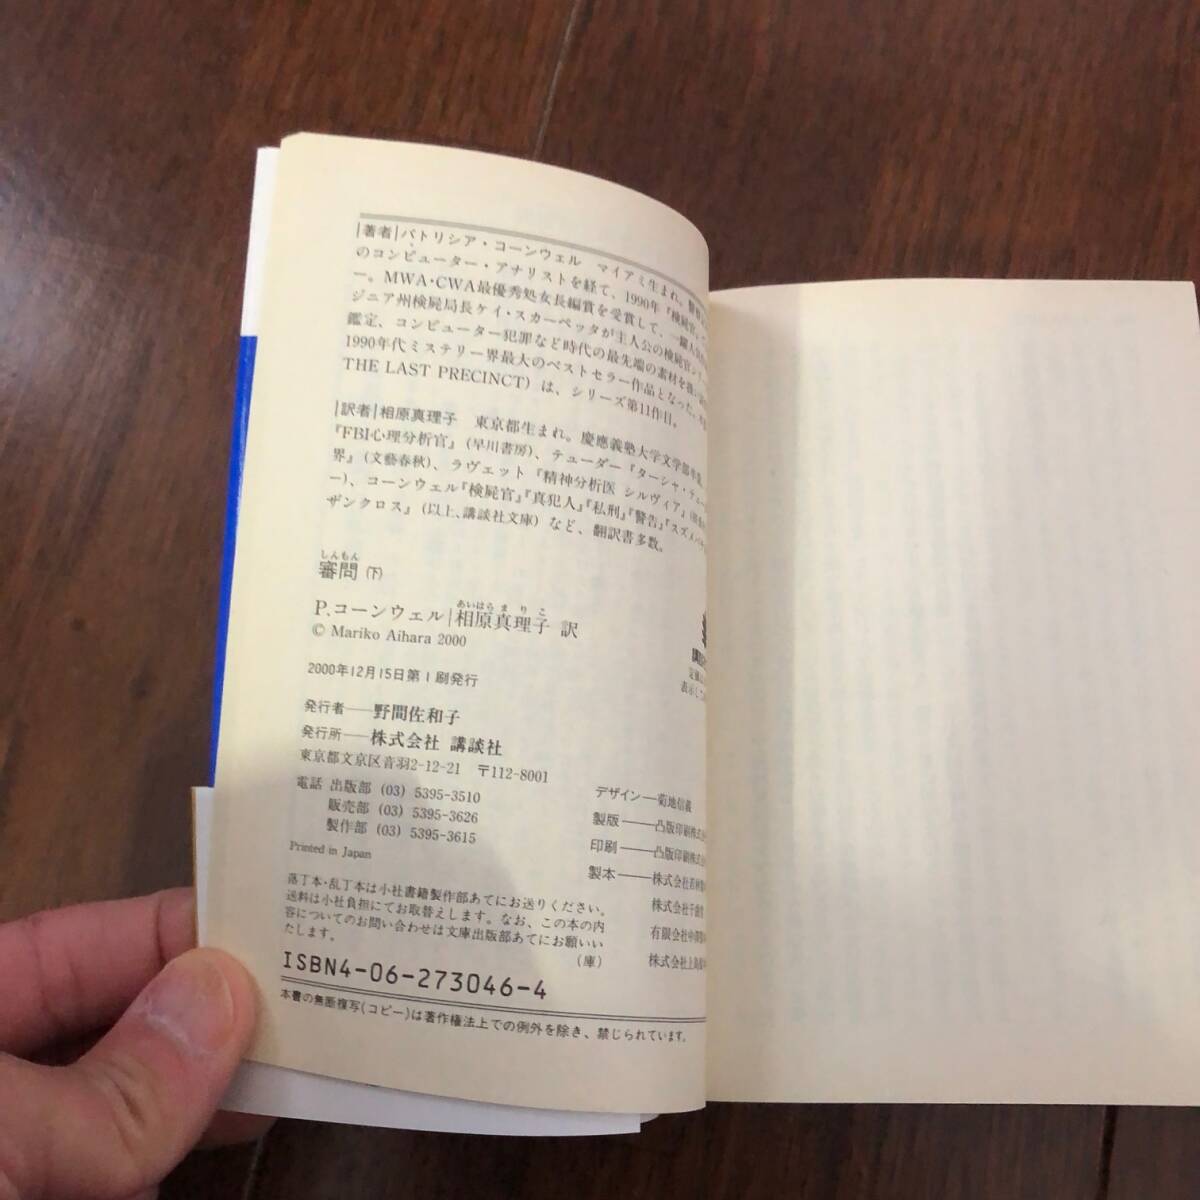 |著者|パトリシア・コーンウェル　マイアミ生まれ。
のコンピューター・アナリストを経て、1990年『検屍官』
ー。MWA・CWA最優秀処女長編賞を受賞して、一躍人気
ジニア州検屍局長ケイ・スカーペッタが主人公の検屍官シリ
鑑定、コンピューター犯罪など時代の最先端の素材を扱い
1990年代ミステリー界最大のベストセラー作品となった。
THE LAST PRECINCT）は、シリーズ第11作目。
|訳者|相原真理子　東京都生まれ。慶應義塾大学文学部卒業。
『FBI心理分析官』（早川書房）、テューダー『ターシャ・テュー
界』（文藝春秋）、ラヴェット『精神分析医 シルヴィア』
ー）、コーンウェル『検屍官』『真犯人』『私刑』『警告』『スズメバチ
ザンクロス』（以上、講談社文庫）など、翻訳書多数。
しんもん
審問（下）
あいはらまりこ
P.コーンウェル|相原真理子 訳
© Mariko Aihara 2000
2000年12月15日第1刷発行
定価は
表示して
発行者――野間佐和子
発行所――株式会社 講談社
東京都文京区音羽2-12-21　〒112-8001
電話 出版部 (03) 5395-3510
販売部 (03) 5395-3626
製作部 (03) 5395-3615
Printed in Japan
デザイン―菊地信義
製版――凸版印刷株式会
印刷――凸版印刷株式会
製本――株式会社若林
株式会社千曲
有限会社中
株式会社上島
落丁本・乱丁本は小社書籍製作部あてにお送りください。
送料は小社負担にてお取替えします。なお、この本の内
容についてのお問い合わせは文庫出版部あてにお願いい
たします。
（庫）
ISBN4-06-273046-4
本書の無断複写(コピー)は著作権法上での例外を除き、禁じられています。